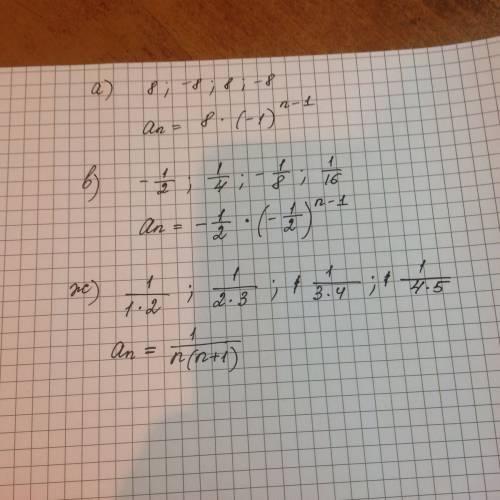 а) 8 ; -8 ; 8 ; -8
aₙ = 8 · (-1)ⁿ⁻¹
в) -1/2 ; 1/4 ; -1/8 ; 1/16
aₙ = -1/2 · (-1/2)ⁿ⁻¹
ж) 1/(1·2) ; 1/(2·3) ; 1/(3·4) ; 1/(4·5)
aₙ = 1/(n(n+1))